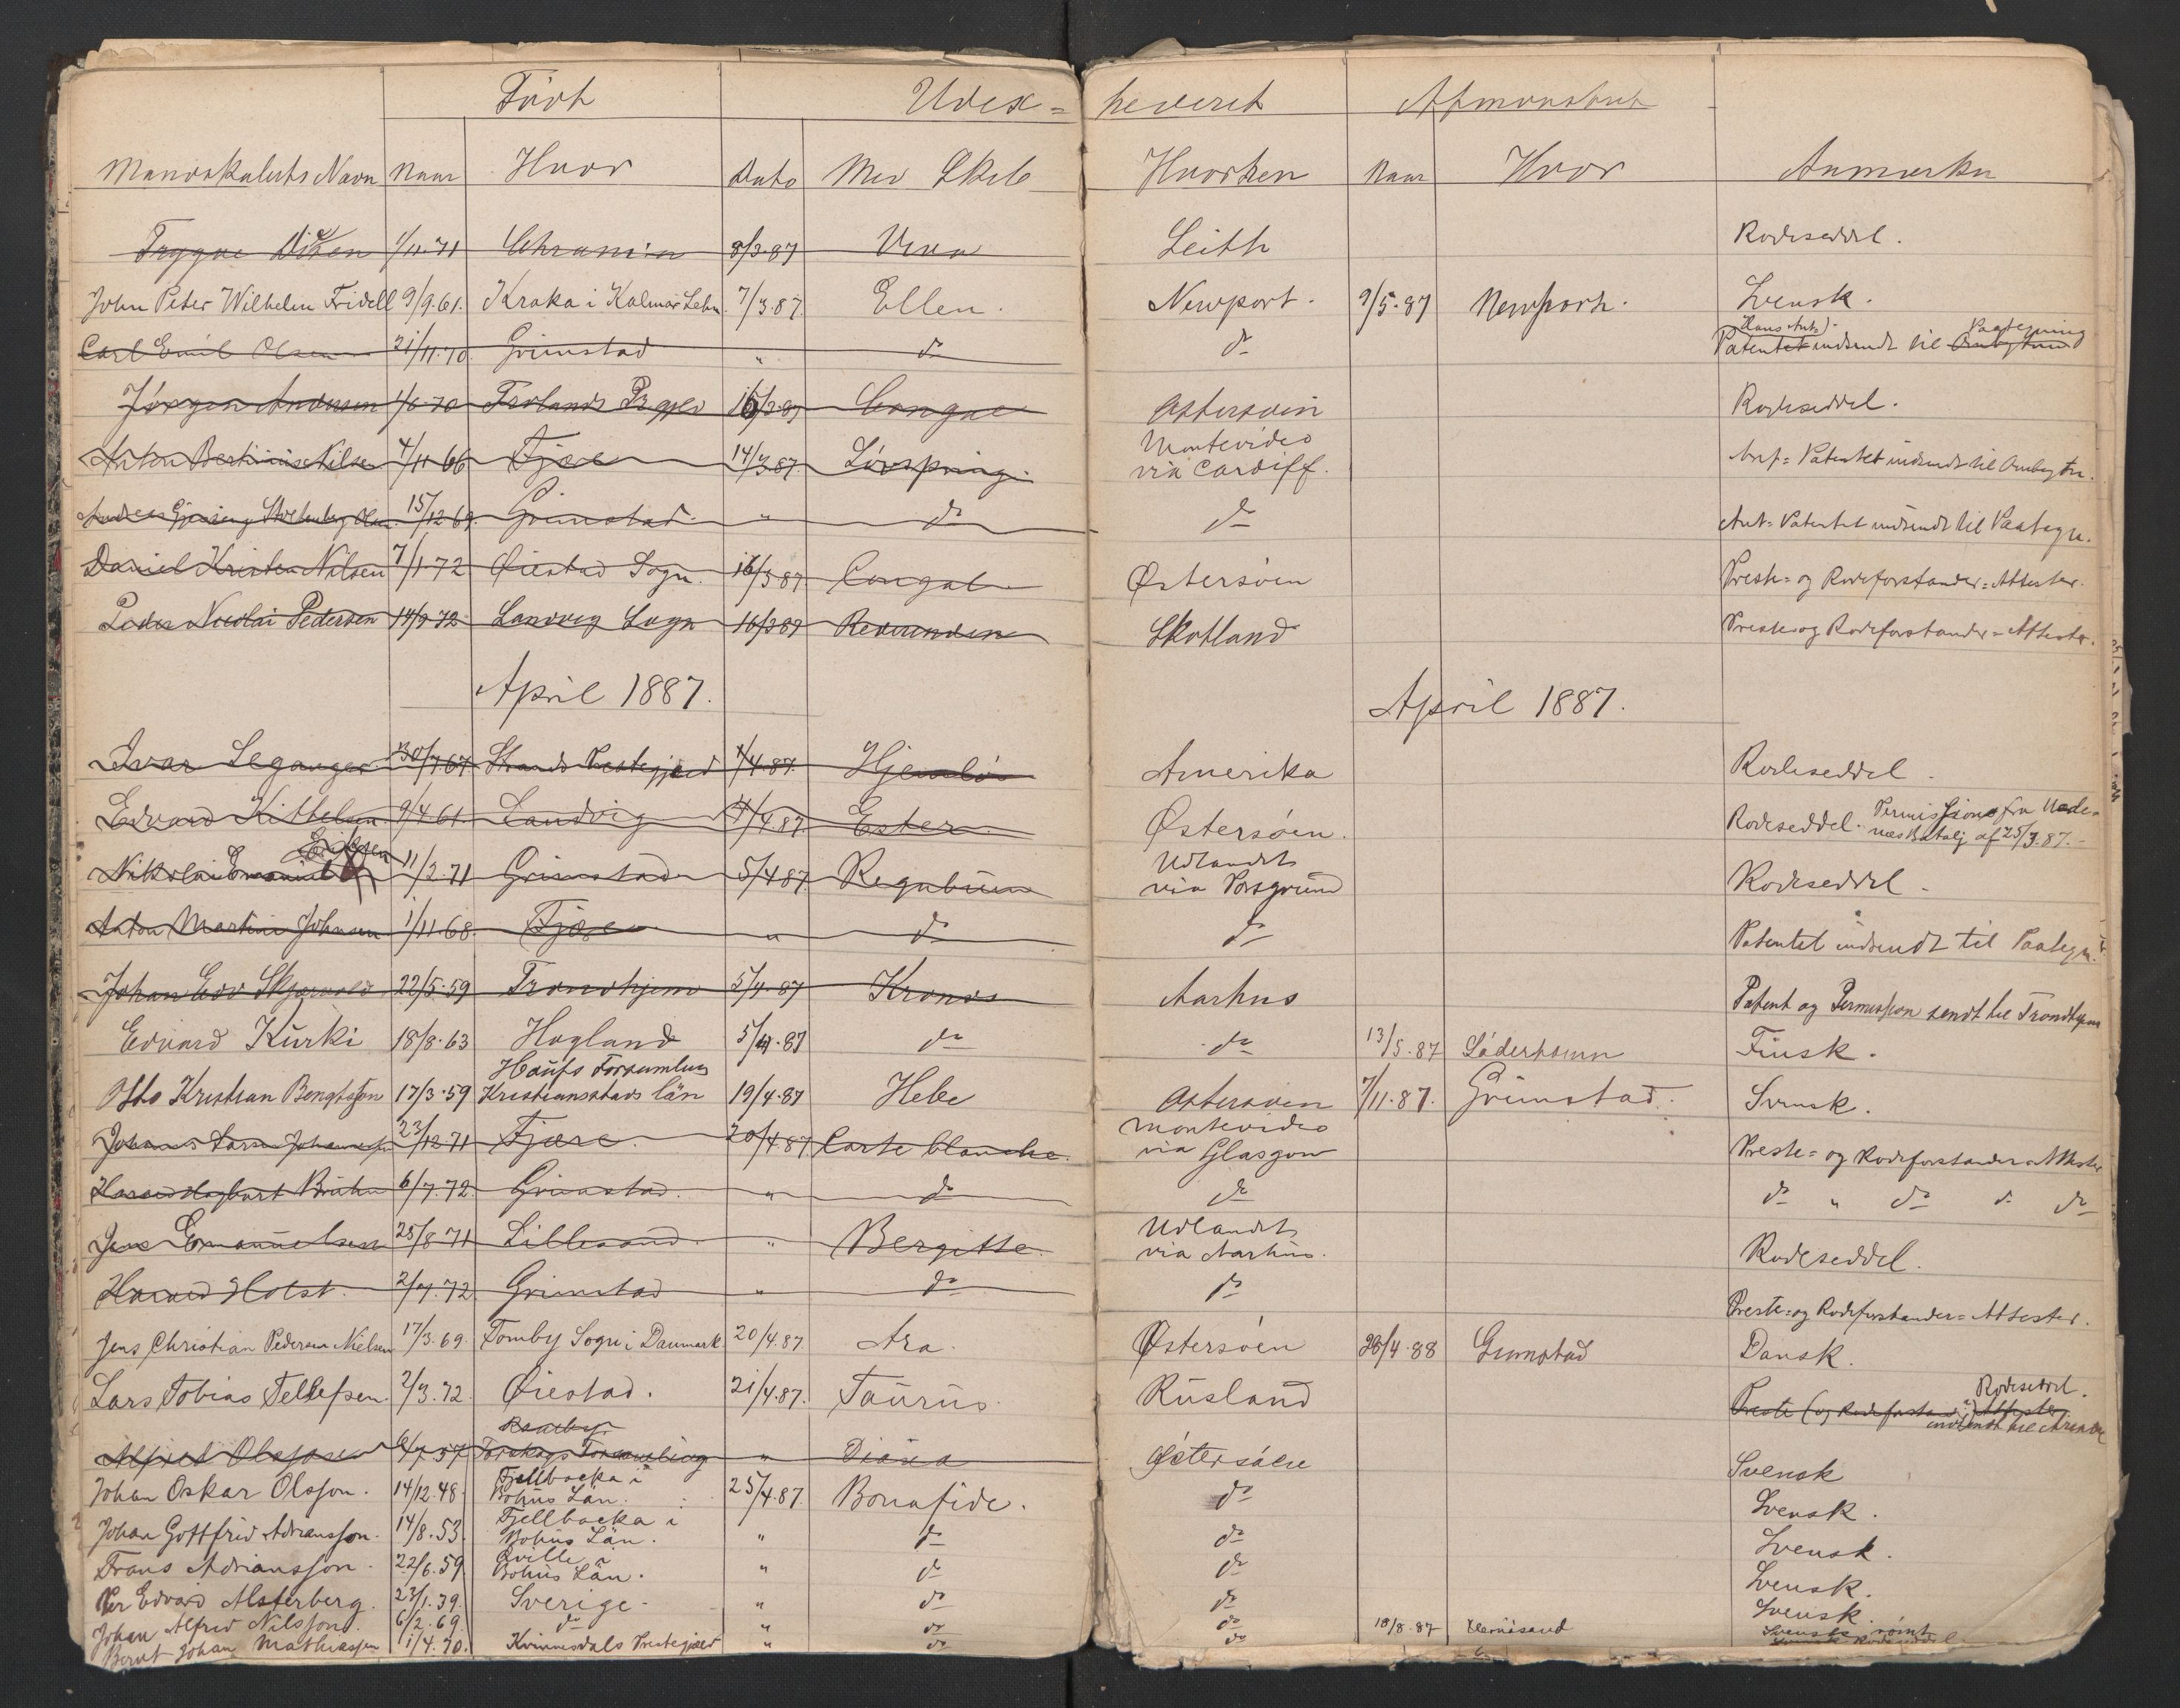 Född Udex= hederet Afmønstret
Mandskabets Navn Naar Hvor Dato Med Skib Hvorhen Naar Hvor Anmærkn
Trygve 1/11.71 Chrania 8/3.87 Leith Rodeseddel.
John Peter Wilhelm Fridell 9/9.61. Kraka i Kalmar Lehn. 7/3.87. Ellen. Newport. 9/5.87 Newport. Svensk.
Carl Emil Olsen 21/11.70. Grimstad " do do Patentet indsendt til Paategning
Jørgen Andersen 1/6.70 Frolands Prgjeld 16/3.87 Congal Østersøen Rodeseddel.
Anton Bertinius Nilsen 4/11 66 Fjære 14/3.87. Løvspring. Montevideo
via Cardiff. Patentet indsendt til
15/12 69. Grimstad. " do do Ant= Patentet indsendt til Paategn.
Daniel Kristen Nilsen 7/1.72 Øiestad Sogn. 16/3 87. Congal Østersøen Preste= og Rodeforstander=Attester.
Peder Nicolai Pedersen 14/9.72 Landvig Sogn 16/3 87 Reverenden Skotland Preste= og Rodeforstander=Attester.
April 1887. April 1887.
Ivar Leganger 30/7.67 Strands Prestegjæld 1/4.87. Hjemlös Amerika Rodeseddel.
Edvard Kittelsen 9/4.61. Landvig 4/4.87. Ester Østersøen. Rodeseddel. Permission fra Nede=
næs Batalj af 25/3.87.-
Eriksen
Nikolai Emanuel 11/2.71 Grimstad 5/4 87 Udlandet
via Porsgrund Rodeseddel.
Anton Martin Johnsen 1/11.68. Fjære " do do Patentet indsendt til Paategn.
Johan Edv 22/5.59 Trondhjem 5/4.87 Kronos Aarhus Patent og Permission sendt til Trondhjem
Edvard Kurki 18/8.63 Hogland 5/4.87 do do 13/5.87 Söderhamn Finsk.
Otto Kristian Bengtsson 17/3.59 Forsamling
Kristiansstads län 19/4.87 Hebe Østersøen 7/11.87. Grimstad. Svensk.
23/12.71 Fjære. 20/4.87 Carte blanche. Montevideo
via Glasgow Preste= og Rodeforstander=Attester
6/7.72. Grimstad. " do do do " do do do
Jens Emanuelsen 25/8 71 Lillesand. " Bergitte. Udlandet
via Aarhus. Rodeseddel.
Harald Holst. 2/7.72 Grimstad " do do Preste= og Rodeforstander=Attester.
Jens Christian Pedersen Nielsen 17/3.69. Tomby Sogn i Danmark 20/4.87. Ara. Østersøen 28/4.88 Grimstad Dansk.
Lars Tobias Tellefsen. 2/3.72. Øiestad. 21/4.87. Taurus. Rusland Rodeseddel.
Preste (og Rodeforstander) Attester
Alfred Olafsson 6/7.57 " Diana Østersøen Svensk
Johan Oskar Olsson. 14/12.48. Fjellbacka i
Bohus Län. 25/4.87. Bonafide. do Svensk.
Johan Gottfrid Adriansson. 14/8.53. Fjellbacka i
Bohus Län. " do do Svensk.
Frans Adriansson. 22/6.59 Qville i
Bohus Län. " do do Svensk.
Per Edvard Alsterberg. 23/1.39. Sverige. " do do Svensk.
Johan Alfred Nilsson. 6/2.69. do " do do 18/8.87 Hernösand Svensk. rømt
Bernt Johan Mathiassen 1/4.70. Kvinnesdals Prestegjæld " do do